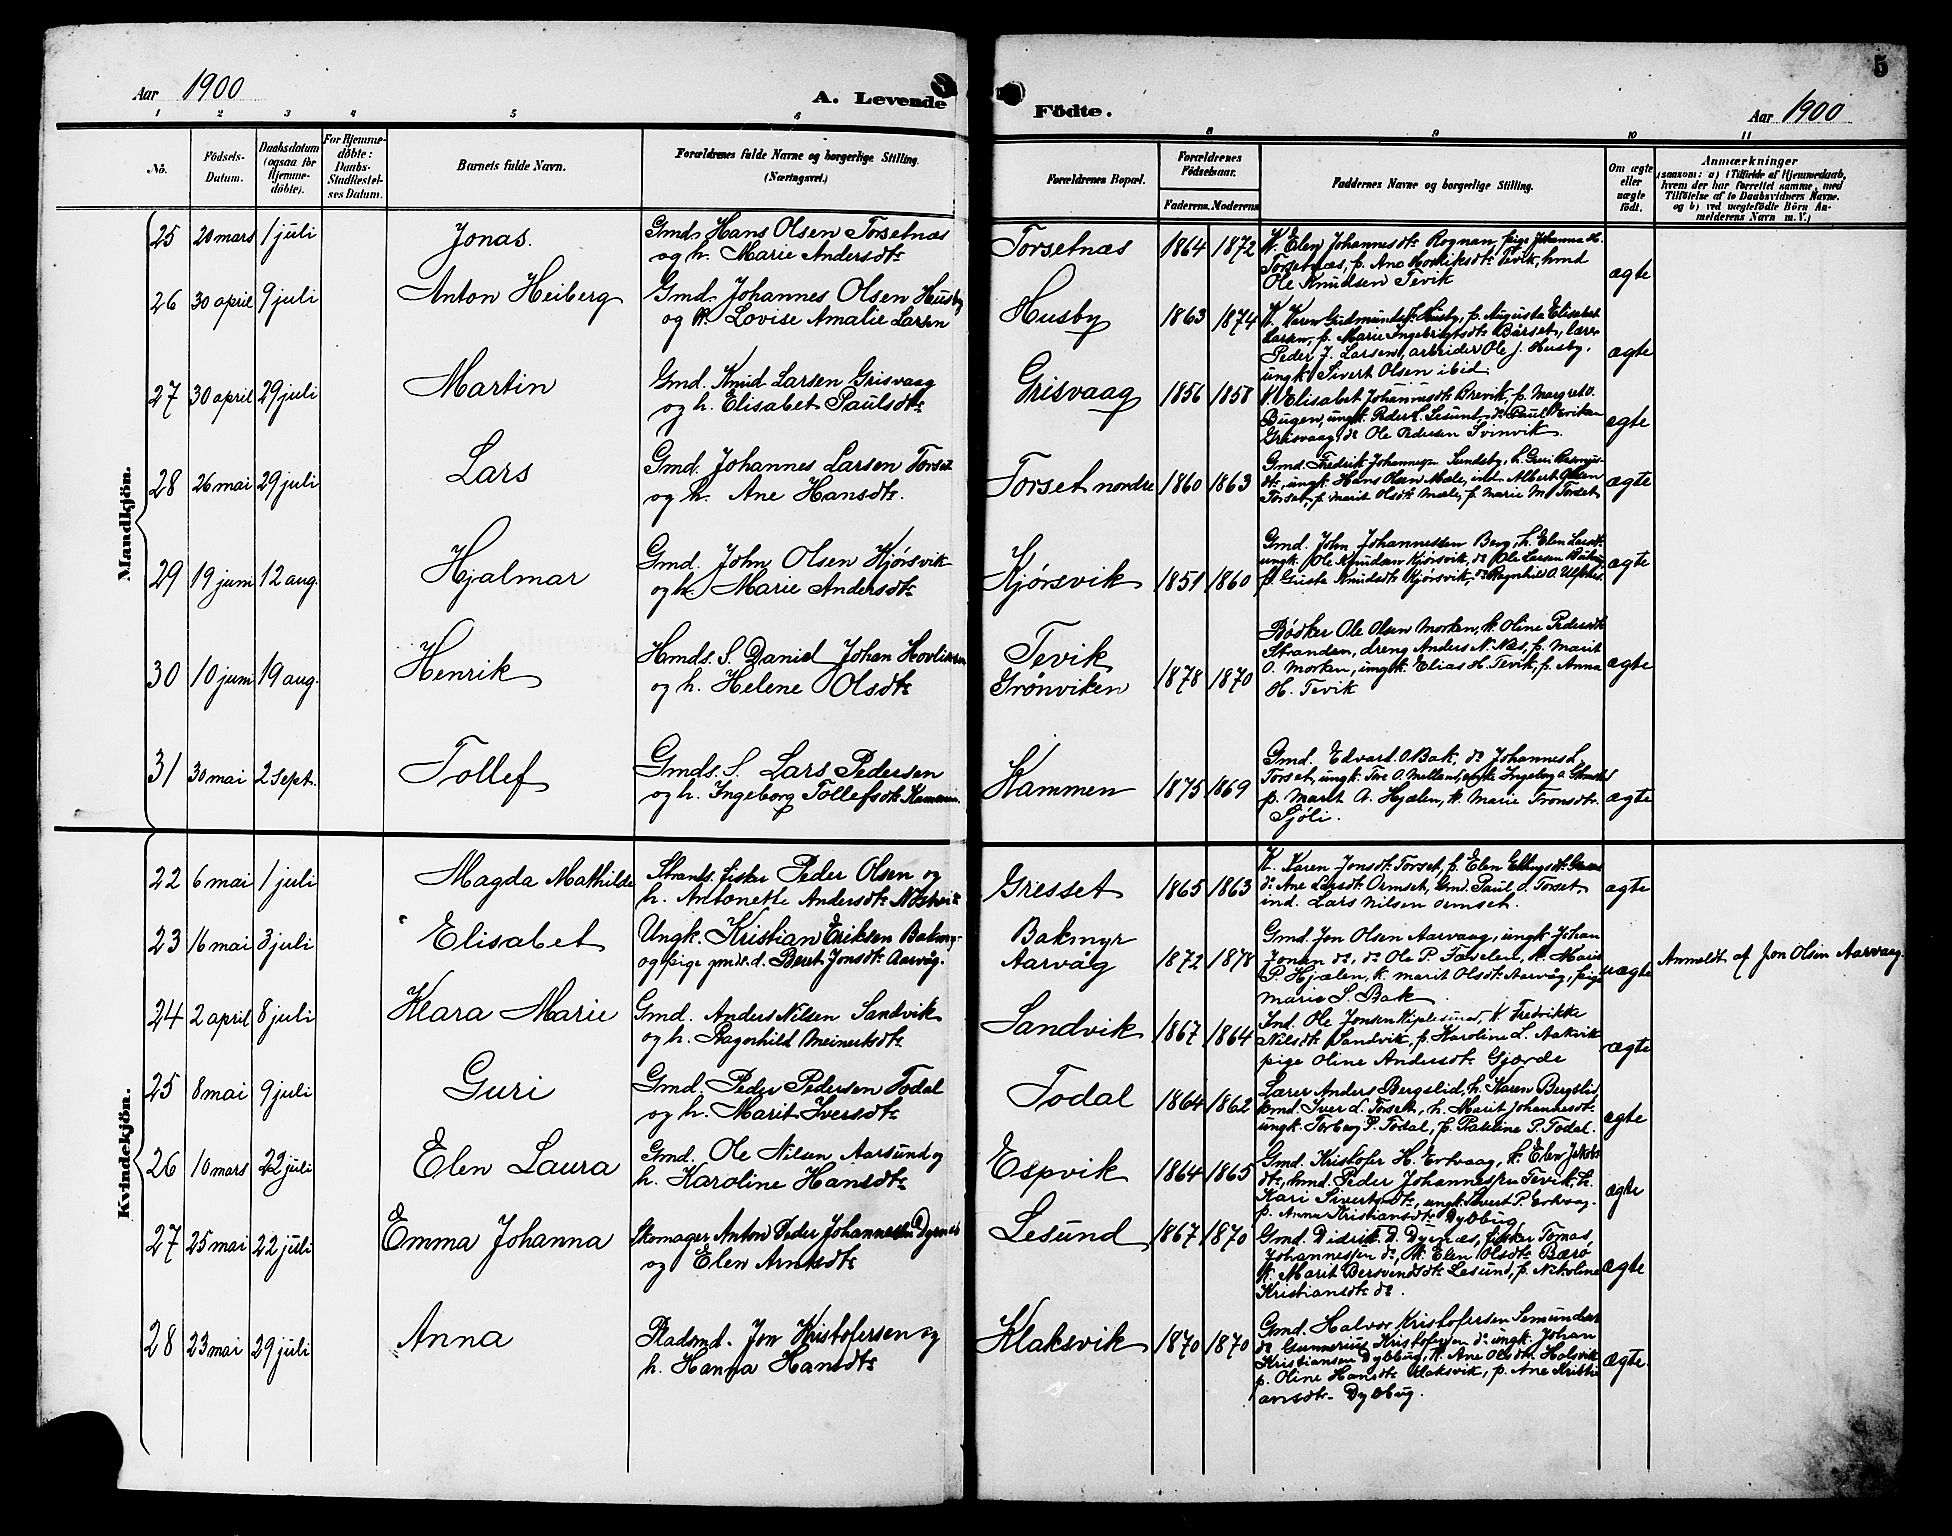 5
Aar 1900
A. Levende
Födte.
Aar 1900
1 2 3 4 5 6
8 9 10 11
No.
Födsels-Datum.
Daabsdatum (ogsaa for Hjemmedöbte).
For Hjemmedöbte: Daabs-Stadfæstelses Datum.
Barnets fulde Navn.
Forældrenes fulde Navne og borgerlige Stilling.
(Næringsvei.)
Forældrenes Bopæl.
Forældrenes Födselsaar.
Faderens. Moderens.
Faddernes Navne og borgerlige Stilling.
Om ægte eller uægte födt.
Anmærkninger
(saasom: a) i Tilfælde af Hjemmedaab,
hvem der har forrettet samme, med
Tilföielse af to Daabsvidners Navne.
og b) ved uægtefödte Börn Anmelderens Navn m. V.)
Mandkjön.
25 20 mars 1 juli Jonas.
Gmd. Hans Olsen Torsetnæs
og h. Marie Andersdt.
Torsetnæs 1864 1872
K. Elen Johannesdt. Rognan, pige Johanna H.
Torsetnæs, p. Ane Henriksdt. Tevik, hmd
Ole Knudsen Tevik
ægte
26 30 april 9 juli Anton Heiberg
Gmd. Johannes Olsen Husby
og h. Lovise Amalie Larsen
Husby 1863 1874
K. Karen Gudmundsdt. Husby, p. Augusta Elisabet
Larsen, p. Marie Ingebrigtsdt. Bårset, lærer
Peder J. Larsen, arbeider Ole J. Husby,
ungk. Sivert Olsen ibid.
ægte
27 30 april 29 juli Martin
Gmd. Knud Larsen Grisvaag
og h. Elisabet Paulsdt.
Grisvaag 1856 1858
K. Elisabet Johannesdt. Brevik, p. Margret O.
Bugen, ungk. Peder L. Lesund, do Paul
Grisvaag, do Ole Pedersen Svinvik.
ægte
28 26 mai 29 juli Lars
Gmd. Johannes Larsen Torset
og h. Ane Hansdt.
Torset nordre 1860 1863
Gmd. Fredrik Johannesen Sundsby, h. Guri Rasmus-
dt., ungk. Hans Olsen Mæle, ind. Albert Olsen
Torset, p. Marit Olsdt. Mæle, p. Marie M. Torset
ægte
29 19 juni 12 aug. Hjalmar
Gmd. John Olsen Kjørsvik
og h. Marie Andersdt.
Kjørsvik 1851 1860
Gmd. John Johannessen Berg, h. Elen Larsdt.
ungk. Ole Knudsen Kjørsvik, do Ole Larsen
p. Knudsdt. Kjørsvik, do Ragnhild O.
ægte
30 10 juni 19 aug. Henrik
Hmds. S. Daniel Johan
og h. Helene Olsdt.
Tevik
Grønviken 1878 1870
Bødker Ole Olsen Morken, k. Oline Pedersdt.
Stranden, dreng Anders N. Næs, p. Marit
O. Morken, ungk. Elias H. Tevik, p. Anna
H. Tevik
ægte
31 30 mai 2 Sept. Tollef
Gmds. S. Lars Pedersen
og h. Ingeborg Tollefsdt. Kammen
Kammen 1875 1869
Gmd. Edvart O. Bak, do Johannes L.
Torset, ungk. Tore O. Ingeborg
p. Marit A. Hjælen, k. Marie Tronsdt.
Sjøli.
ægte
Kvindekjön.
22 6 mai 1 juli Magda Mathilde
Strands. fisker Peder Olsen og
h. Antonette Andersdt.
Gresset 1865 1863
K. Karen Jonsdt. Torset, p. Elen
do Ane Larsdt. Ormset, Gmd. Paul d. Torset,
ind. Lars Nilsen Ormset.
ægte
23 16 mai 3 juli Elisabet
Ungk. Kristian Eriksen Bakmyr
og pige gmds. d. Beret Jonsdt. Aarvåg.
Bakmyr
Aarvåg 1872 1878
Gmd. Jon Olsen Aarvaag, ungk. Johan
Jonsen do, do Ole P. K. Marie
P. Hjælen, k. Marit Olsdt. Aarvåg, pige
Marie S. Bak
uægte
Anmeldt af Jon Olsen Aarvaag.
24 2 april 8 juli Klara Marie
Gmd. Anders Nilsen Sandvik
og h. Ragnhild Meinertsdt.
Sandvik 1867 1864
Ind. Ole Jonsen K. Fredrikke
Nilsdt. Sandvik, p. Karoline L. Aakvik
pige Oline Andersdt. Gjørde
ægte
25 8 mai 9 juli Guri
Gmd. Peder Pedersen Todal
og h. Marit Iversdt.
Todal 1864 1862
Lærer Anders Bergslid, h. Karen Bergslid,
Gmd. Iver d. Torset, h. Marit Johannesdt.
ungk. Torberg P. Todal, p. P. Todal.
ægte
26 10 mars 22 juli Elen Laura
Gmd. Ole Nilsen Aarsund og
h. Karoline Hansdt.
Espvik 1864 1865
Gmd. Kristofer H. Ertvaag, k. Elen Jakobs
dt., hmd. Peder Johannessen Tevik, h.
Kari Sivertsdt., ungk. Sivert P. Ertvaag,
p. Anna Kristiansdt. Dybbug
ægte
27 25 mai 22 juli Emma Johanna
Skomager Anton Peder Johannessen Dyrnes
og Elen Arntsdt.
Lesund 1867 1870
Gmd. Didrik D. Dyrnæs, fisker Tomas
Johannessen do, K. Elen Olsdt. Bærø
K. Marit Bersvendsdt. Lesund, p. Nikoline
Kristiansdt. do.
ægte
28 23 mai 29 juli Anna
Radsmd. Jon Kristofersen og
h. Hanna Hansdt.
Klaksvik 1870 1870
Gmd. Halvor Kristofersen
do Gunnerius Kristofersen do, ungk. Johan
Kristiansen Dybbug, k. Ane Olsdt. Halsvik
p. Oline Hansdt. Klaksvik, p. Ane Kristi
ansdt. Dybbug.
ægte